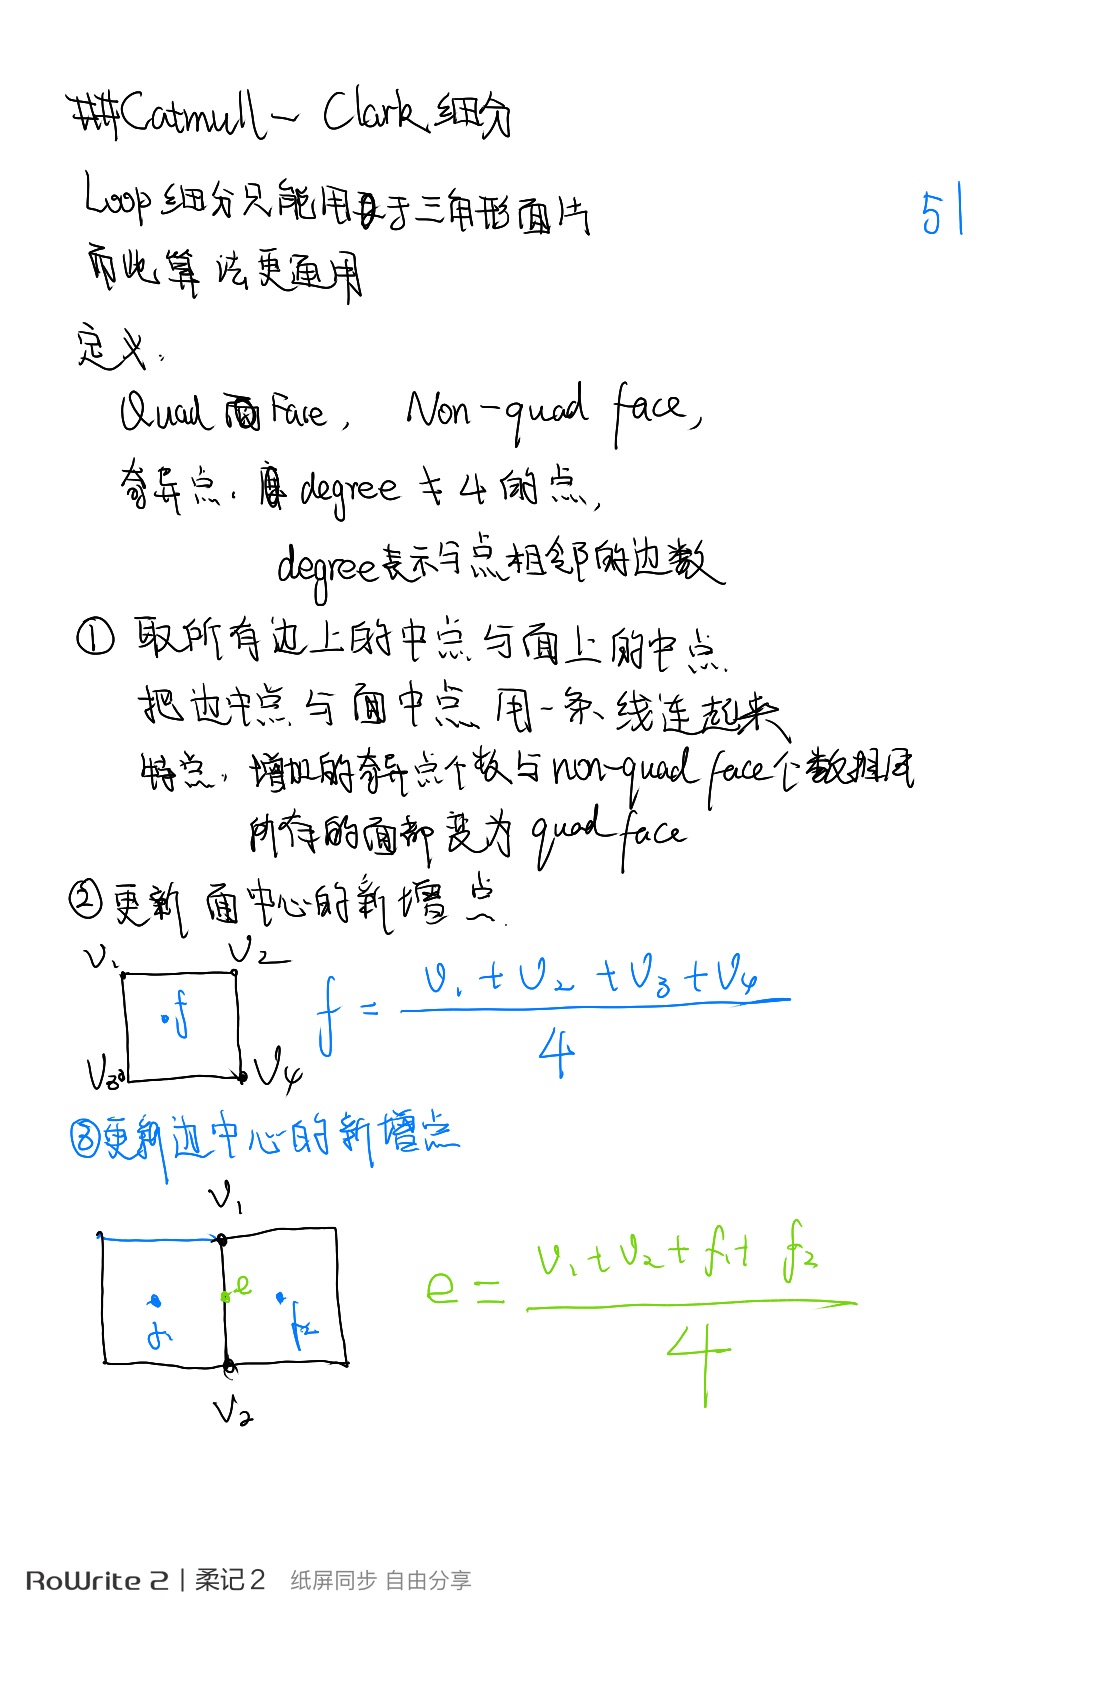 ##Catmull-Clark细分
Loop细分只能用于三角形面片
51
而此算法更通用
定义:
Quad 面Face, Non-quad face,
奇异点: 度degree ≠ 4的点,
degree表示与点相邻的边数
① 取所有边上的中点与面上的中点.
把边中点与面中点用一条线连起来
特点: 增加的奇异点个数与non-quad face个数相同
所有的面都变为quad face
②更新面中心的新增点.
V1 V2
f
V3 V4
f = (V1+V2+V3+V4)/4
③更新边中心的新增点
V1
e
f1 f2
V2
e = (V1+V2+f1+f2)/4
RoWrite 2 | 柔记2 纸屏同步 自由分享